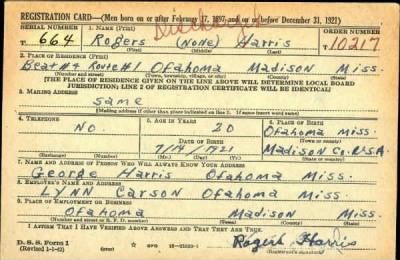 REGISTRATION CARD—(Men born on or after February 17, 1897 and on or before December 31, 1921)
SERIAL NUMBER 1. NAME (Print) ORDER NUMBER
T 664 Rogers (none) Harris 10217
(First) (Middle) (Last)
2. PLACE OF RESIDENCE (Print)
Beat #4 Route #1 Ofahoma Madison Miss.
(Number and street) (Town, township, village, or city) (County) (State)
[THE PLACE OF RESIDENCE GIVEN ON THE LINE ABOVE WILL DETERMINE LOCAL BOARD
JURISDICTION; LINE 2 OF REGISTRATION CERTIFICATE WILL BE IDENTICAL]
3. MAILING ADDRESS
Same
[Mailing address if other than place indicated on line 2. If same insert word same]
4. TELEPHONE 5. AGE IN YEARS 6. PLACE OF BIRTH
No 20 Ofahoma Miss.
DATE OF BIRTH (Town or county)
7/14/1921 Madison Co. U.S.A.
(Mo.) (Day) (Yr.) (State or country)
7. NAME AND ADDRESS OF PERSON WHO WILL ALWAYS KNOW YOUR ADDRESS
George Harris Ofahoma Miss.
8. EMPLOYER'S NAME AND ADDRESS
LYNN Carson Ofahoma Miss.
9. PLACE OF EMPLOYMENT OR BUSINESS
Ofahoma Madison Miss.
(Number and street or R. F. D. number) (Town) (County) (State)
I AFFIRM THAT I HAVE VERIFIED ABOVE ANSWERS AND THAT THEY ARE TRUE.
D. S. S. Form 1
(Revised 1-1-42) GPO 16—21630-1
(Registrant's signature)